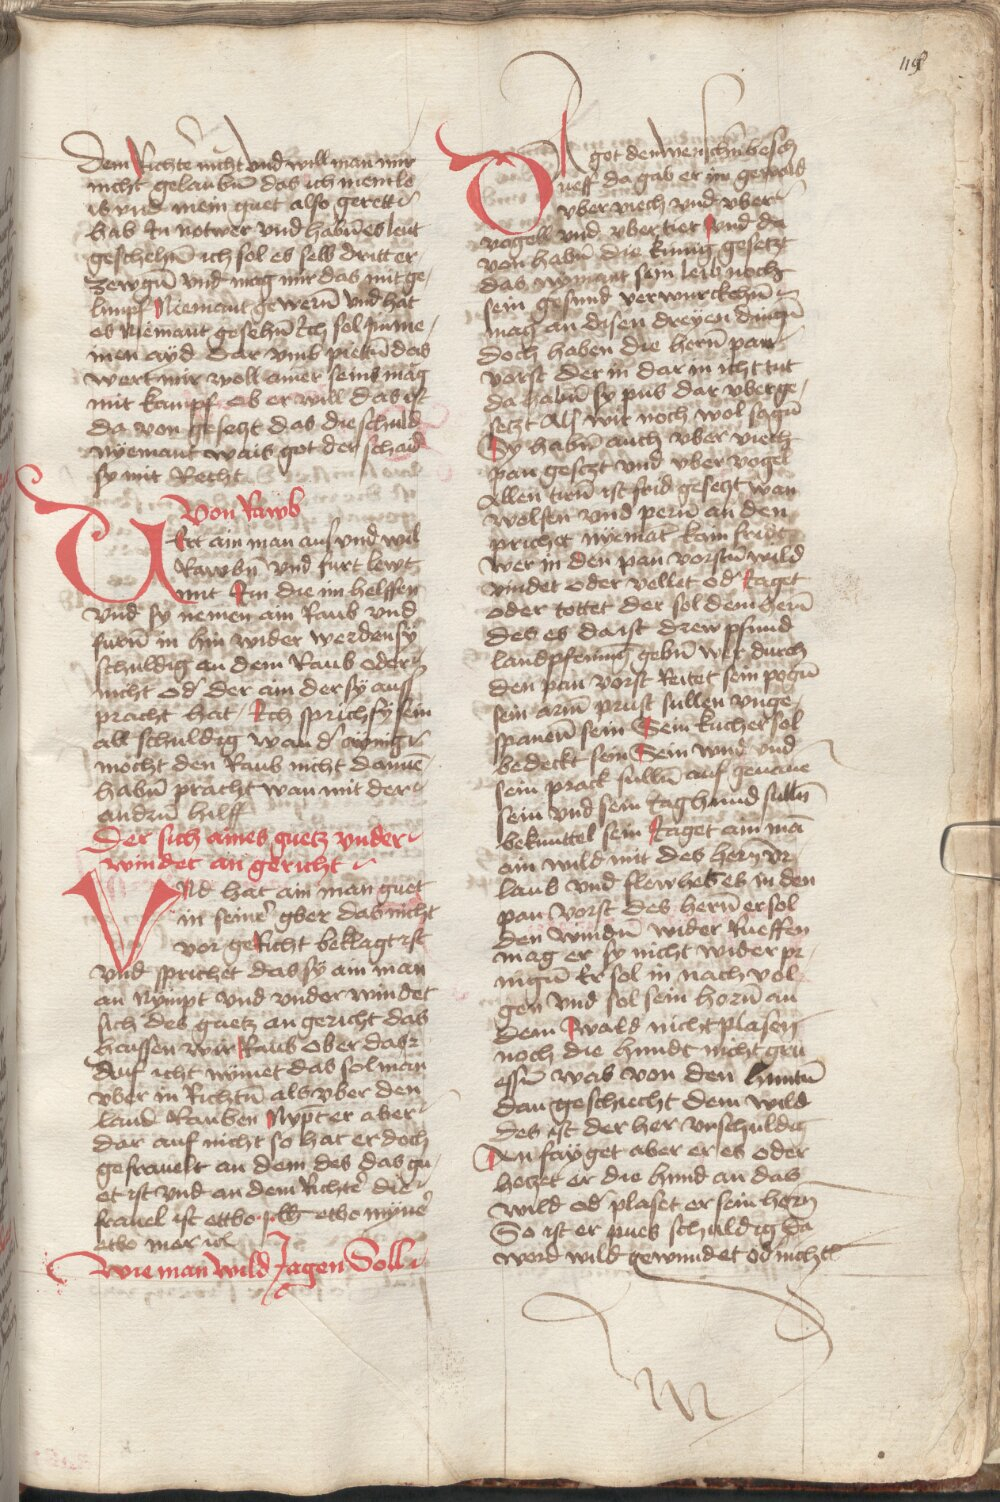 119
Dem Richter nicht vnd will man mir
nicht gelaubn̄ das ich mentle
ib vnd mein guet also gerett
hab In notwer vnd habn̄ es leut
geschehn̄ ich sol es selb dritt er-
zewgn̄ vnd mag mir das mit ge-
limpf Niemant gewern̄ vnd hat
es Niemant gesehn̄ Ich sol Im ne-
men ayd dar vmb pietn̄ das
wert mir woll ainer seins mag
mit kampf ob er will das ist
da von gesetzt das die schuld
nyemant wais got der schaid
sy mit Recht
Von Rawb
Ert ain man aus vnd wil
Rawbn̄ vnd furt lewt
mit Im die im helffen
vnd sy nemen ain Raub vnd
furn̄ in hin wider werden sy
schuldig an dem Raub oder
nicht od' der ain der sy auss
pracht hat Ich sprich sy sein
all schuldig wan d' ainig
mocht den Raub nicht dannē
habn̄ pracht wan mit der
andern̄ hilff
Der sich aines guetz vnder
windet an gericht
Vnd hat ain man guet
in seiner gber das nicht
vor geRicht beklagt ist
vnd sprichet das sy ain man
an Nympt vnd vnder windet
sich des guetz an gericht das
haissen wir Raub ober das
Auf icht nymet das sol man
vber in Richtn̄ als vber den
land Rauben Nypt er aber
dar auf nicht so hat er doch
gefrauelt an dem des das gu-
et ist vnd an dem Richter die
frauel ist ettbo etbo myner
etbo mer
Wie man Wild Jagen Soll
DA got den menschn̄ besch
ueff da gab er im gewalt
vber viech vnd vber
vogell vnd vber tier vnd da
von habn̄ die kunig gesetzt
das nyemant sein leib noch
sein gesund verwurckchn̄
mag an disen dreyen dingn̄
doch haben die hern̄ pan
vorst der in dar in icht tut
da habn̄ sy pus dar vber ge-
setzt Als wir noch wol sagn̄
Sy habn̄ auch vber viech
pan gesetzt vnd vber vogel
Allen tirn̄ ist frid gesetzt wan
wolfen vnd pern̄ an den
prichet nyemāt kain frid
wer in den pan vorstn̄ wild
vindet oder vellet od' Jaget
oder tottet der sol dem hern̄
des es da ist drew pfund
landpfening gebn̄ wer durch
den pan vorst Reitet sein pogn̄
sein arm prust sullen vnge-
spanen̄ sein Sein kucher sol
bedeckt sein Sein wind vnd
sein prack sulln̄ auf geuane
sein vnd sein Jaghund sulln̄
bekuntel sein Jaget ain mā
ain wild mit des hern̄ vr-
laub vnd flewhet es in den
pan vorst des hern̄ er sol
den windn̄ wider Rueffen
mag er sy nicht wider pr-
ingn̄ Er sol in nach vol-
gen vnd sol sein horn̄ an
dem wald nicht plasen
noch die hundt nicht gru
essn̄ was von den huntn̄
dan geschiecht dem wild
des ist der her vnschuldig
An fayget aber er es oder
hetzet er die hund an das
wild od' plaset er sein horn
So ist er pues schuldig da
word wild gewundet od' nicht